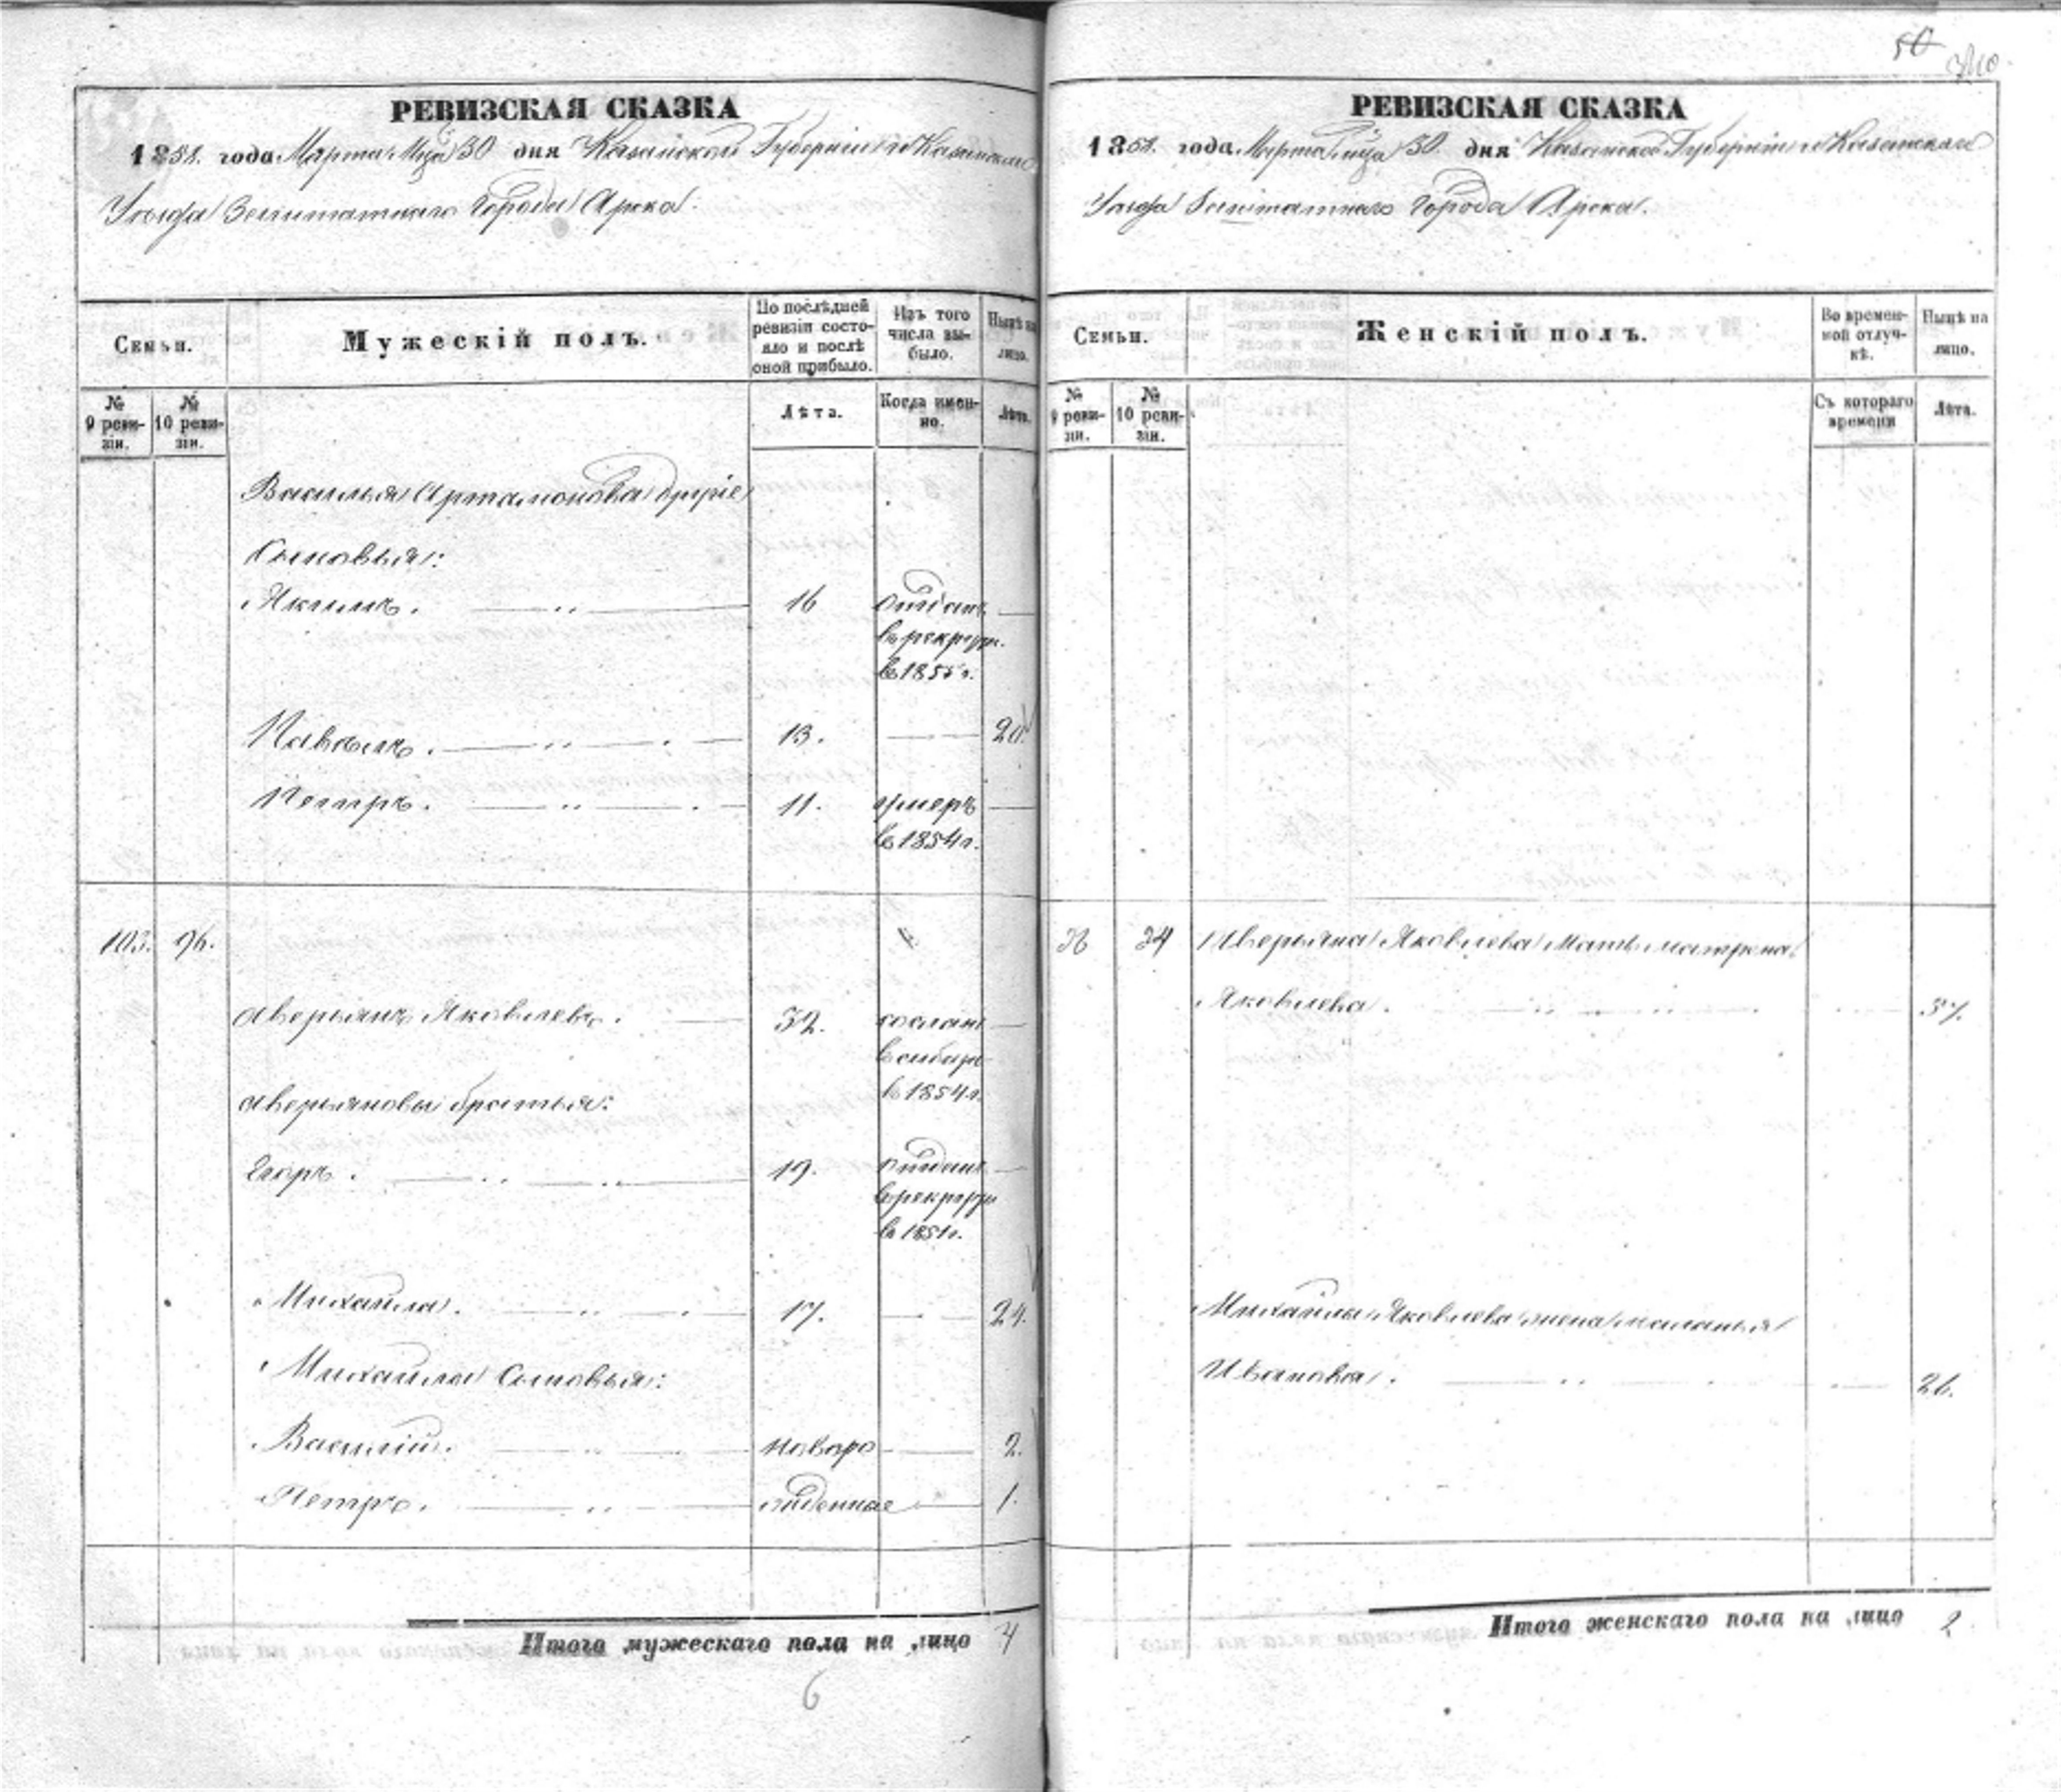 50
РЕВИЗСКАЯ СКАЗКА
1858. года Марта М-ца 30 дня Казанской Губернiи и Казанскаго
Уѣзда Заштатнаго Города Арска.
Семьи.
Мужескiй полъ.
По послѣдней ревизiи состояло и послѣ оной прибыло.
Изъ того числа выбыло.
Нынѣ на лицо.
№ 9 ревизiи.
№ 10 ревизiи.
Лѣта.
Когда именно.
Лѣта.
Василья Артамонова другiе
Сыновья:
Якимъ. 16 отданъ
в рекруты
в 1855 г.
Павелъ. 13. 20.
Петръ. 11. умеръ
в 1854 г.
103. 96.
Аверьянъ Яковлевъ. 32. сосланъ
в сибирь
в 1854 г.
Аверьяновы братья:
Егоръ. 19. отданъ
в рекруты
в 1851 г.
Михайла. 17. 24.
Михайлы Сыновья:
Василiй. новоро 2.
Петръ. жденные 1.
Итого мужескаго пола на лицо 4
6
РЕВИЗСКАЯ СКАЗКА
1858. года Марта м-ца 30 дня Казанской Губернiи и Казанскаго
Уѣзда Заштатнаго Города Арска.
Семьи.
Женскiй полъ.
Во временной отлучкѣ.
Нынѣ на лицо.
№ 9 ревизiи.
№ 10 ревизiи.
Съ котораго времени
Лѣта.
34 Аверьяна Яковлева Мать матрена
Яковлева. 57.
Михайлы Яковлева жена маланья
Иванова. 26.
Итого женскаго пола на лицо 2